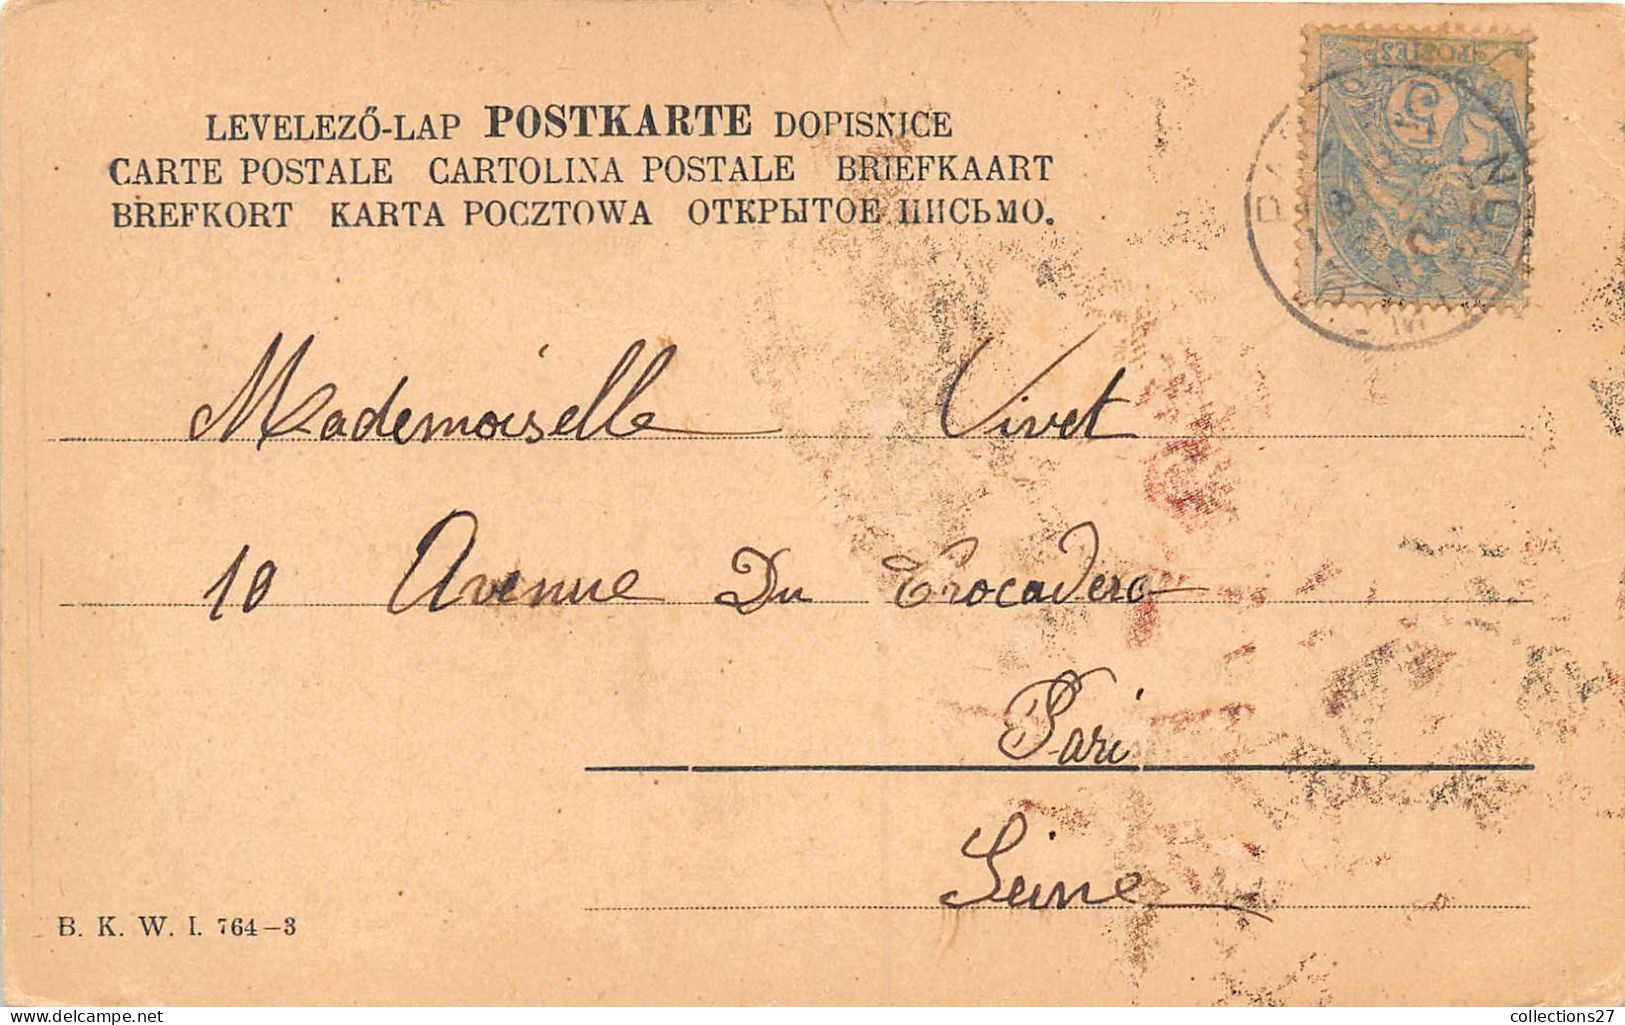 LEVELEZŐ-LAP POSTKARTE DOPISNICE
CARTE POSTALE CARTOLINA POSTALE BRIEFKAART
BREFKORT KARTA POCZTOWA ОТКРЫТОЕ ПИСЬМО.
POSTES
5c
Mademoiselle Vivet
10 Avenue Du Trocadero
Pari
Seine
B. K. W. I. 764-3
delcampe.net
collections27